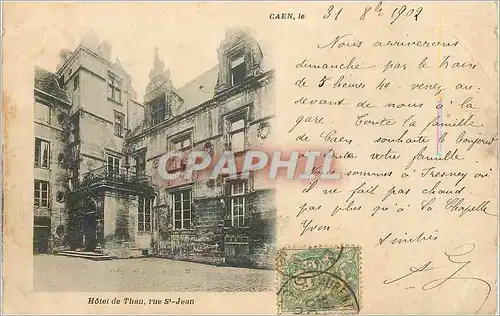 CAEN, le 31 8bre 1902
Nous arriverons
dimanche par le train
de 5 heures 40 - venez au
devant de nous à la
gare. Toute la famille
de Caen souhaite le bonjour
à toute votre famille
Nous sommes à Fresney où
il ne fait pas chaud
pas plus qu'à La Chapelle
Yvon.
Amitiés
CPARPHIL
Hôtel de Than, rue St-Jean